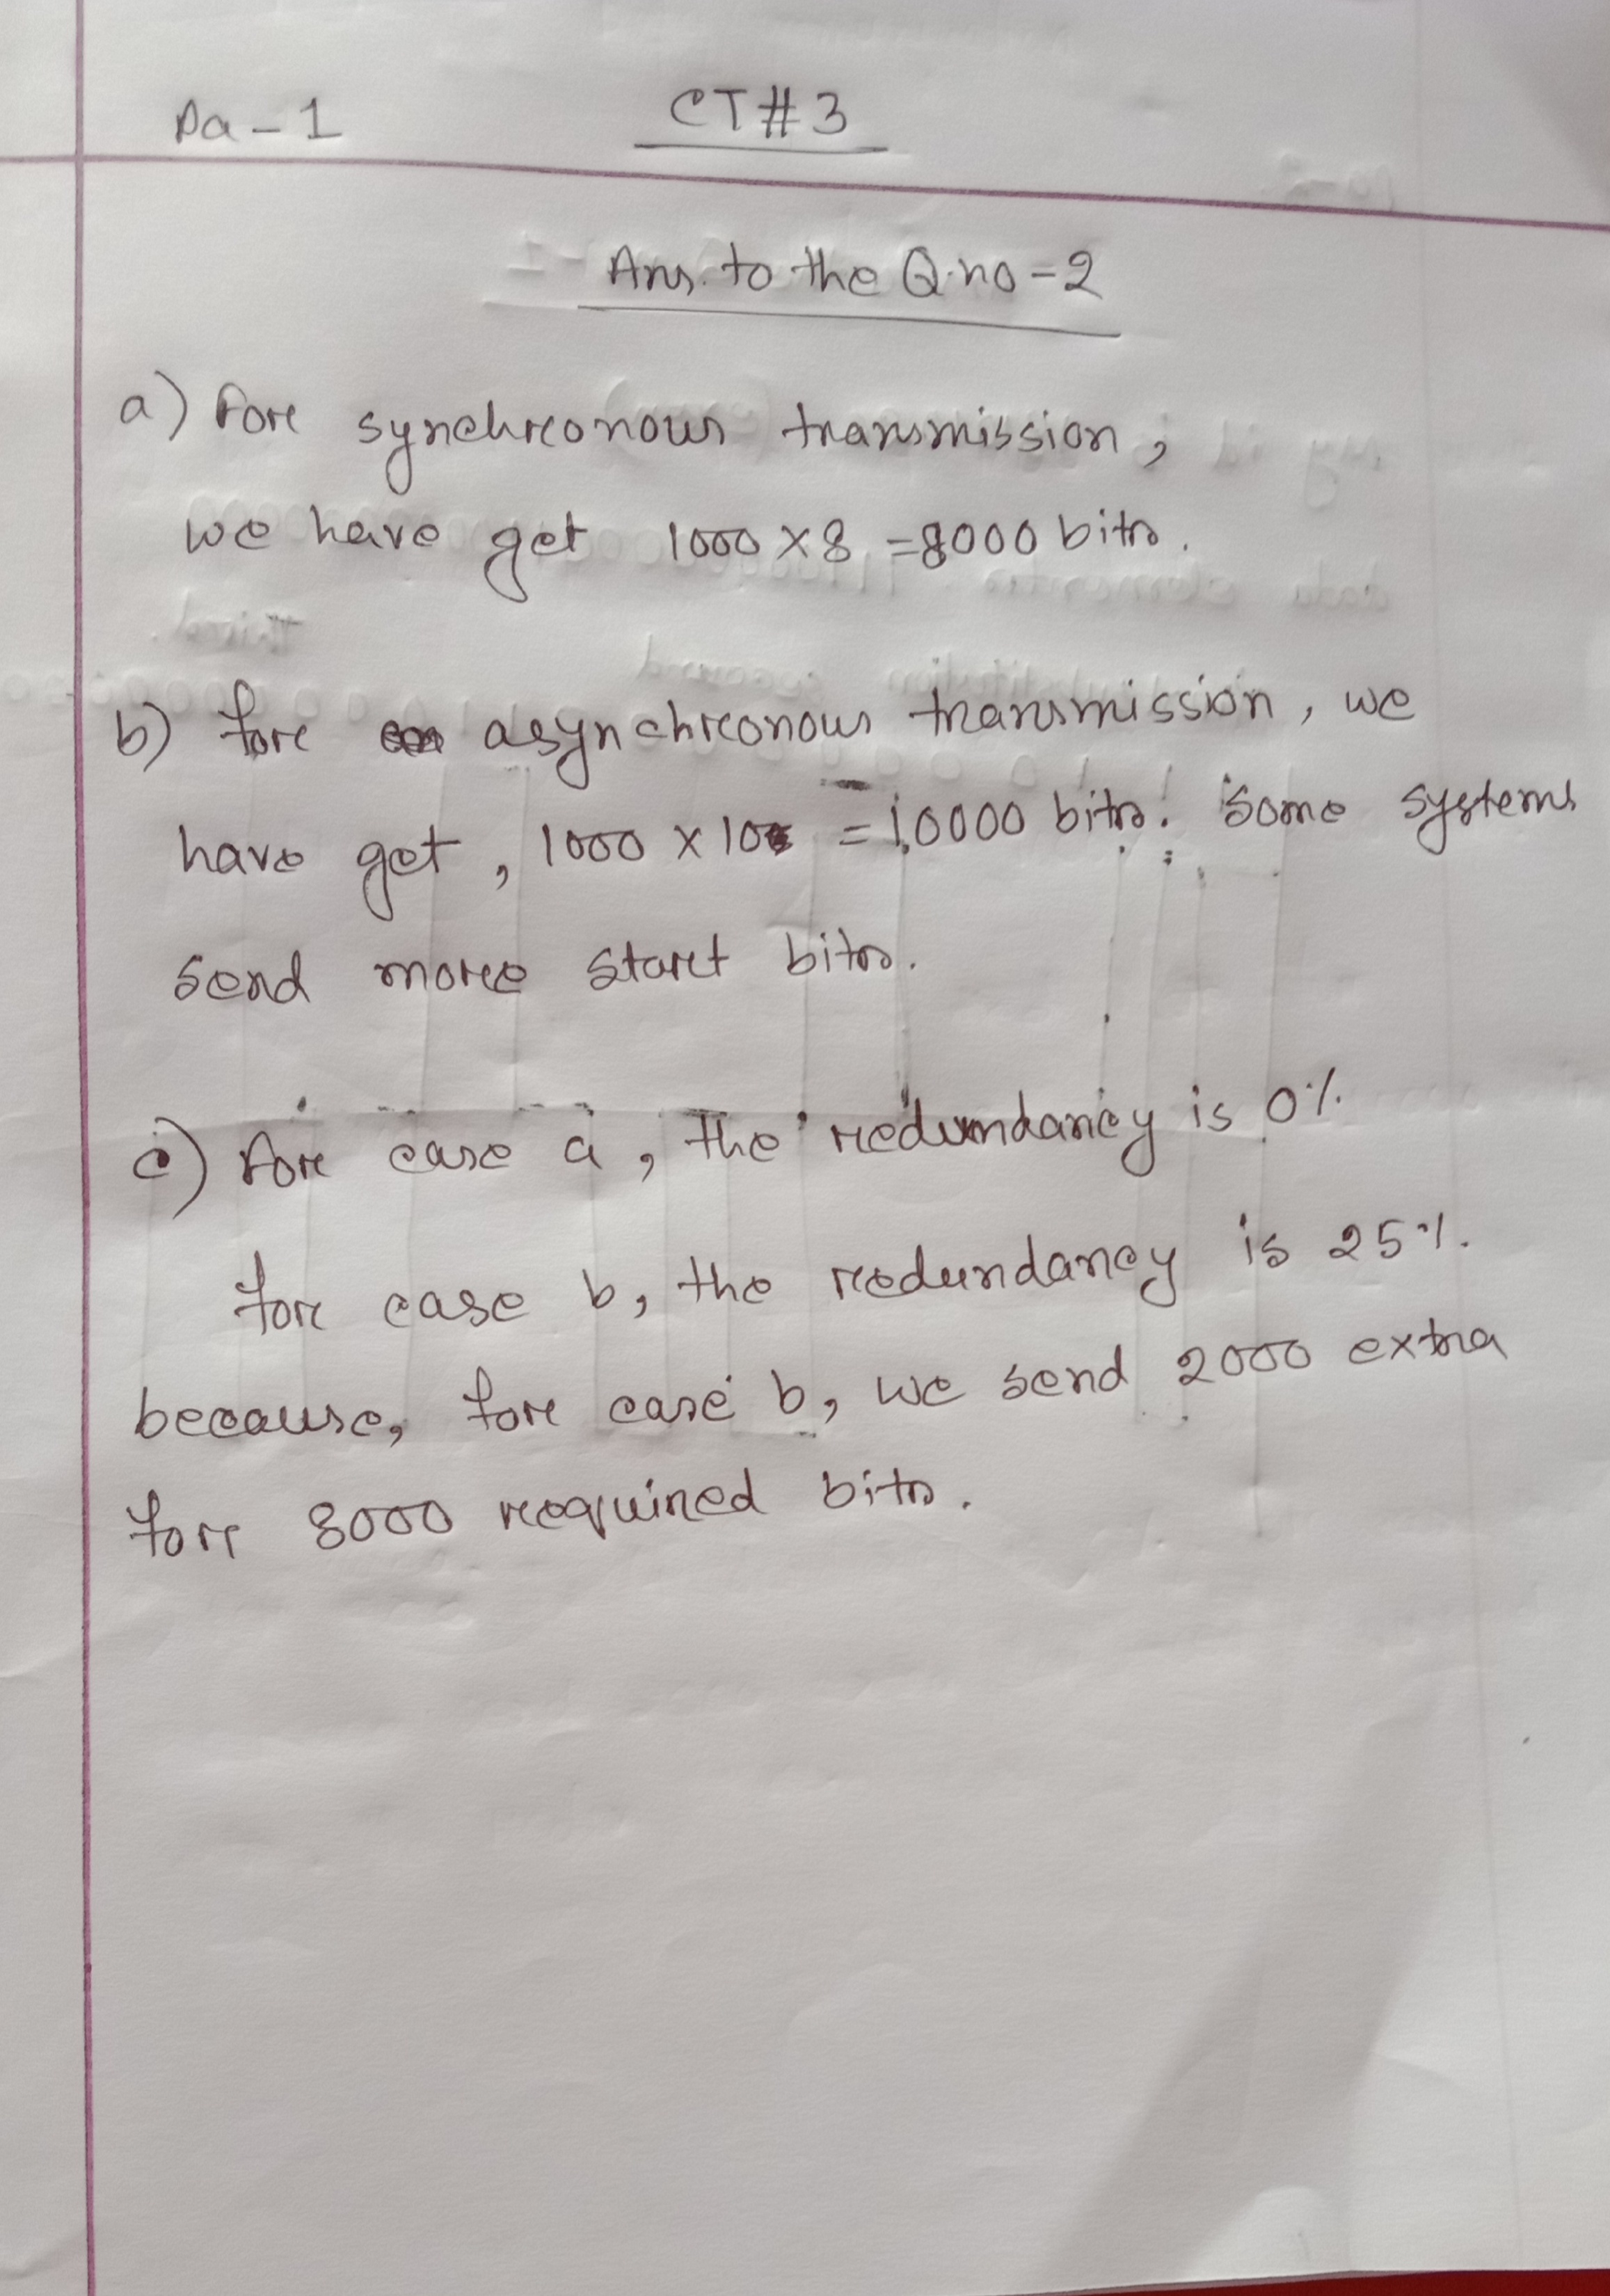 Pa-1
CT#3
Ans. to the Q.no-2
a) For synchronous transmission,
we have get 1000 × 8 = 8000 bits.
b) for asynchronous transmission, we
have get, 1000 × 10 = 10000 bits. Some systems
send more start bits.
c) For case a, the redundancy is 0%
for case b, the redundancy is 25%.
because, for case b, we send 2000 extra
for 8000 required bits.